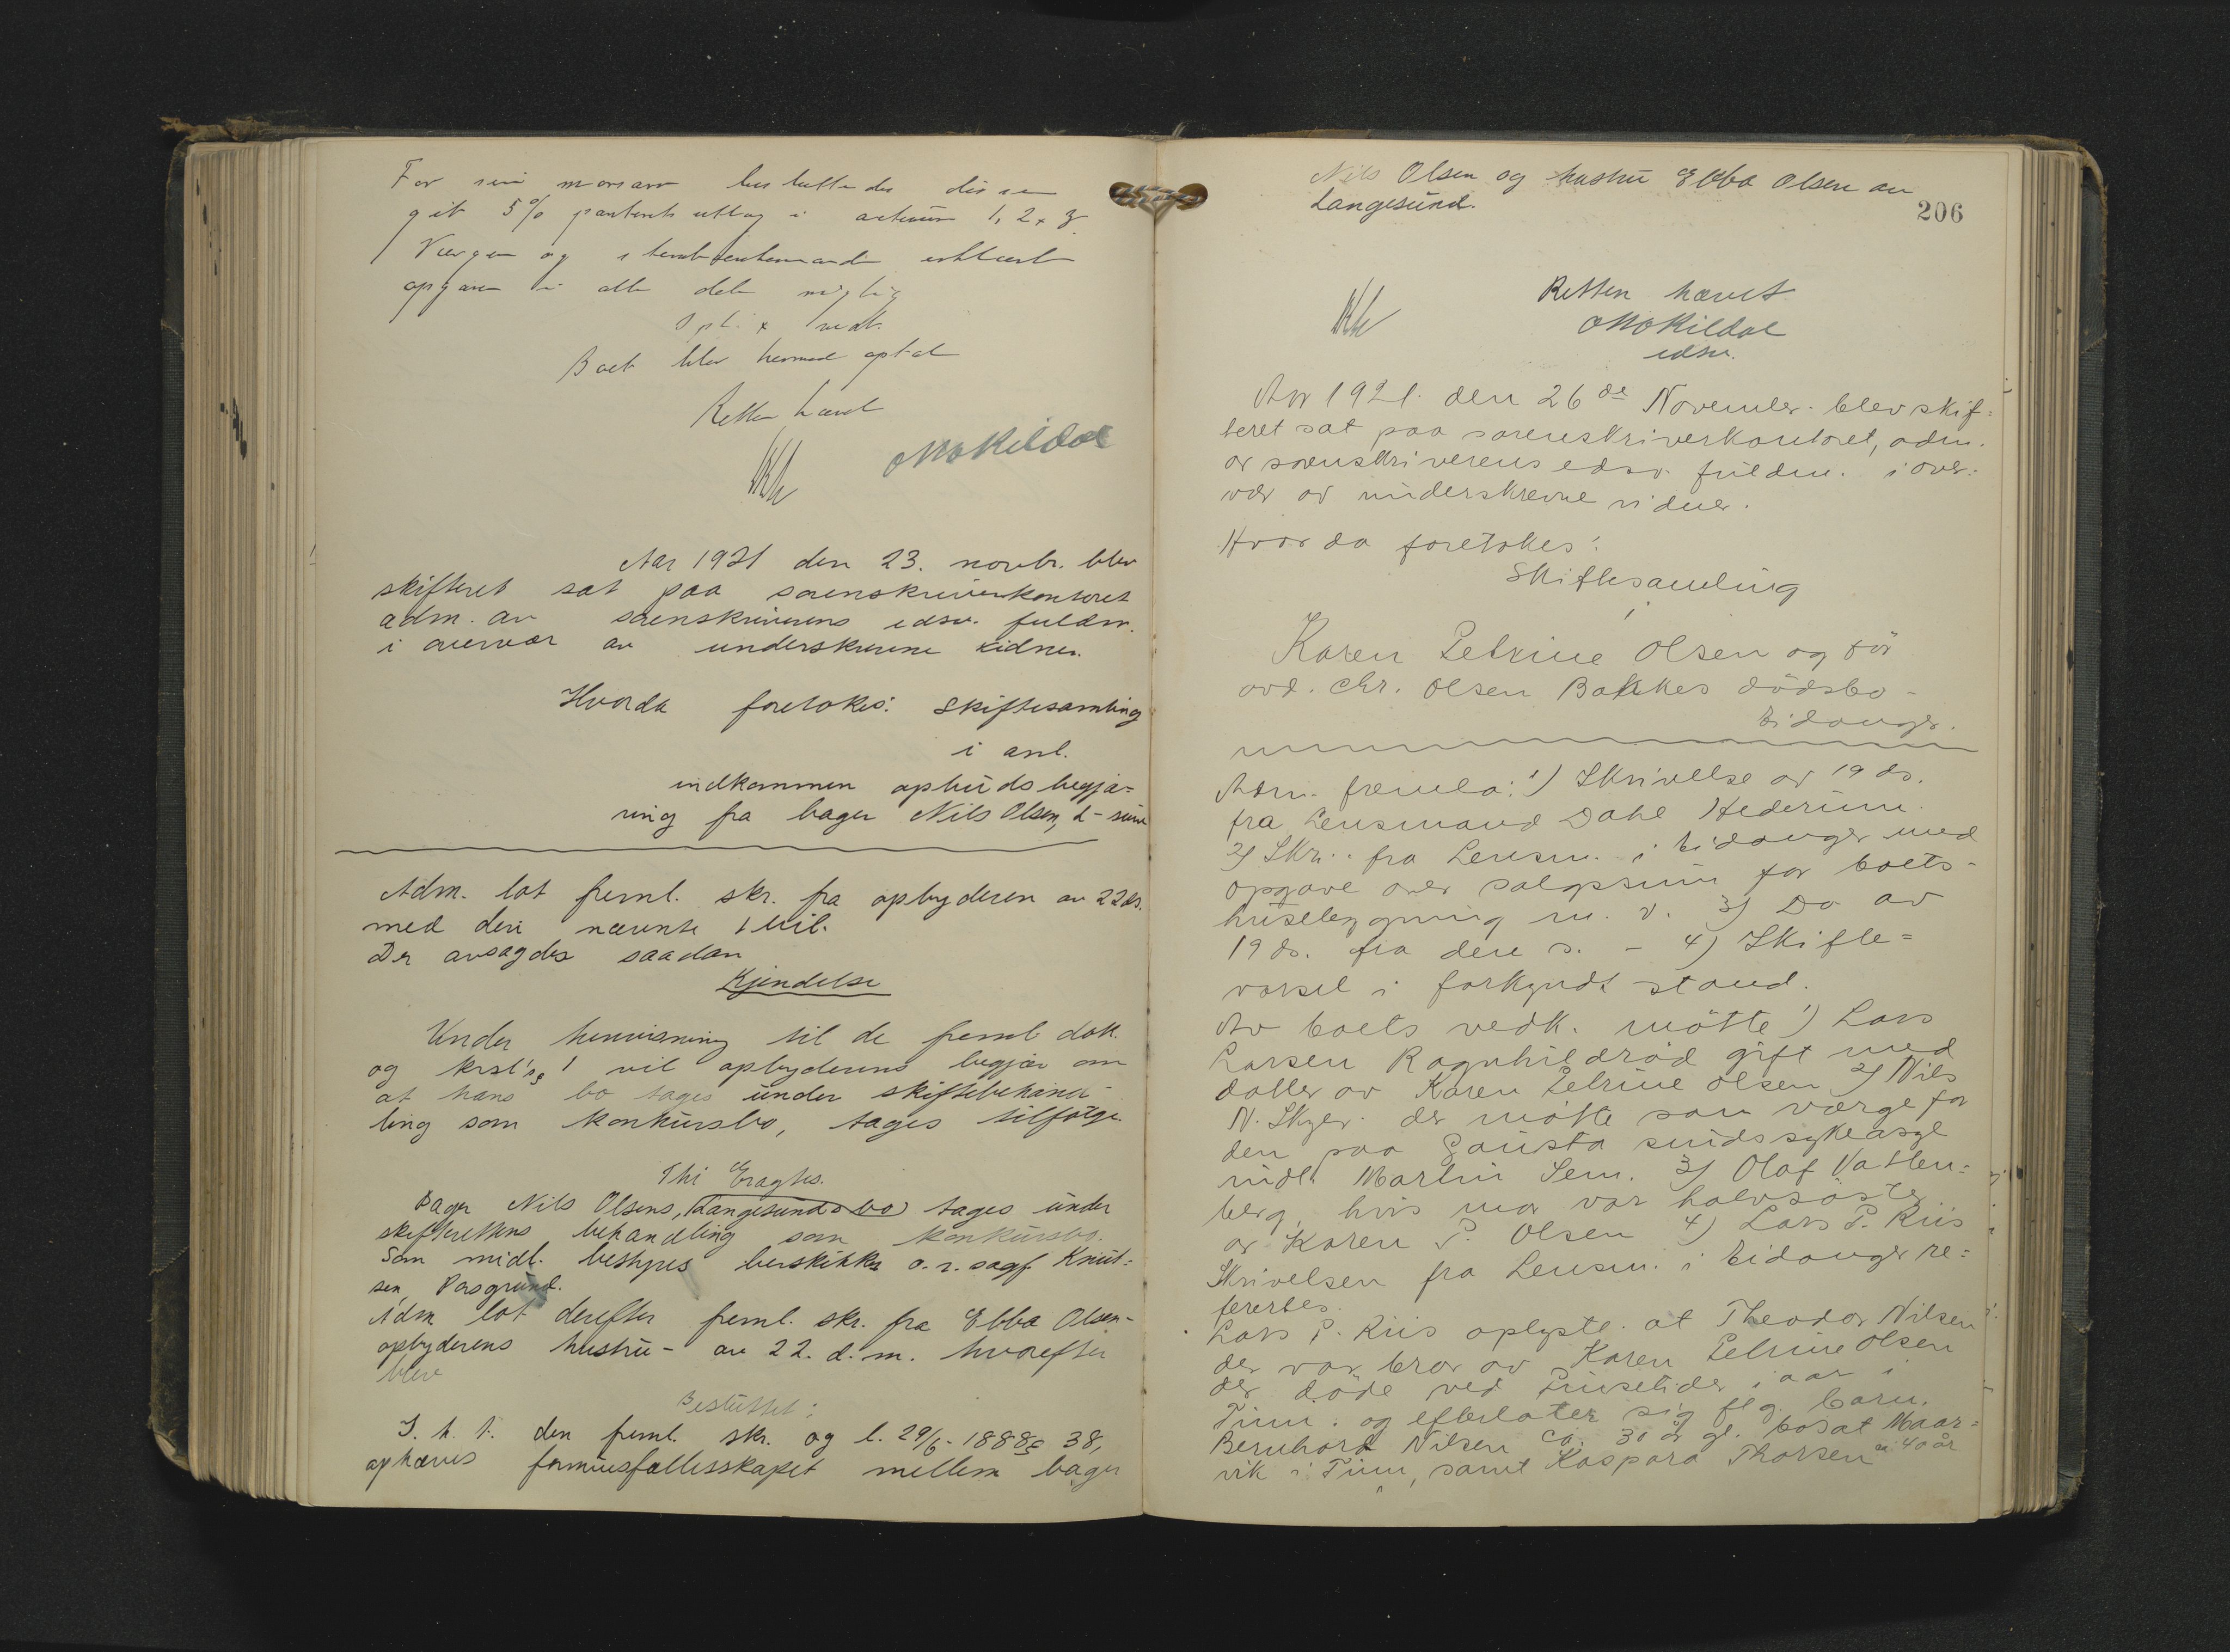 For sin morsarv
git 5% panteret utlæg i activum 1, 2 &
Værgen og
opgaven i alle dele rigtig
Opl. & vedt.
Boet blev hermed opt at
Retten hævet
O Mo Kildal
Aar 1921 den 23. novbr. blev
skifteret sat paa sorenskriverkontoret
adm. av sorenskriverens edsv. fuldm.
i overvær av underskrevne vidner.
Hvorda foretokes: Skiftesamling
i anl.
indkommen opbudsbegjæ=
ring fra bager Nils Olsen, L-sund
Adm. lot freml. skr. fra opbyderen av 22 ds.
med den nævnte 1 bil.
Der avsagdes saadan
Kjendelse
Under henvisning til de freml. dok.
og krsl's § 1 vil opbyderens begjær om
at hans bo tages under skiftebehand-
ling som konkursbo, tages tilfølge.
Thi Eragtes.
Bager Nils Olsens, Langesund bo tages under
skifterettens behandling som konkursbo.
Som midl. bestyrer beskikkes o.r.sagf. Knut=
sen, Porsgrund.
Adm lot derefter freml. skr. fra Ebba Olsen-
opbyderens hustru - av 22. d.m. hvorefter
blev
Besluttet:
I. h. t. den freml. skr. og l. 29/6-1888 § 38,
ophæves formuesfællesskapet mellem bager
206
Nils Olsen og hustru Ebba Olsen av
Langesund.
Retten hævet
O Mo Kildal
edsv.
Aar 1921. den 26de November. blev skif=
teret sat paa sorenskriverkontoret, adm.
av sorenskriverens edsv. fuldm. i over=
vær av underskrevne vidner.
Hvor da foretokes:
Skiftesamling
i
Karen Petrine Olsen og før
avd. Chr. Olsen Bakkes dødsbo -
Eidanger.
Adm. fremla: 1) Skrivelse av 19 ds.
fra Lensmand Dahl Hederum.
2) Skr. fra Lensm. i Eidanger med
opgave over salgssum for boets
husebygning m. v. 3) Do av
19 ds. fra den s. - 4) Skifte=
varsel i forkyndt stand.
Av boets vedk. møtte 1) Lars
Larsen Ragnhildrød gift med
datter av Karen Petrine Olsen 2) Nils
N. Skyer. der møtte som værge for
den paa Gausta sindssykeasyl
indl. Martin Sem. 3) Olaf Vatten=
berg, hvis mor var halvsøster
av Karen P. Olsen 4) Lars P. Riis
Skrivelsen fra Lensm. i Eidanger re=
fererdes.
Lars P. Riis oplyste. at Theodor Nilsen
der var bror av Karen Petrine Olsen
der døde ved Pinsetider i aar i
Tinn. og efterlater sig flg. barn.
Bernhard Nilsen ca. 30 år gl. bosat Maar=
vik i Tinn, samt Kaspara Thorsen ca 40 år